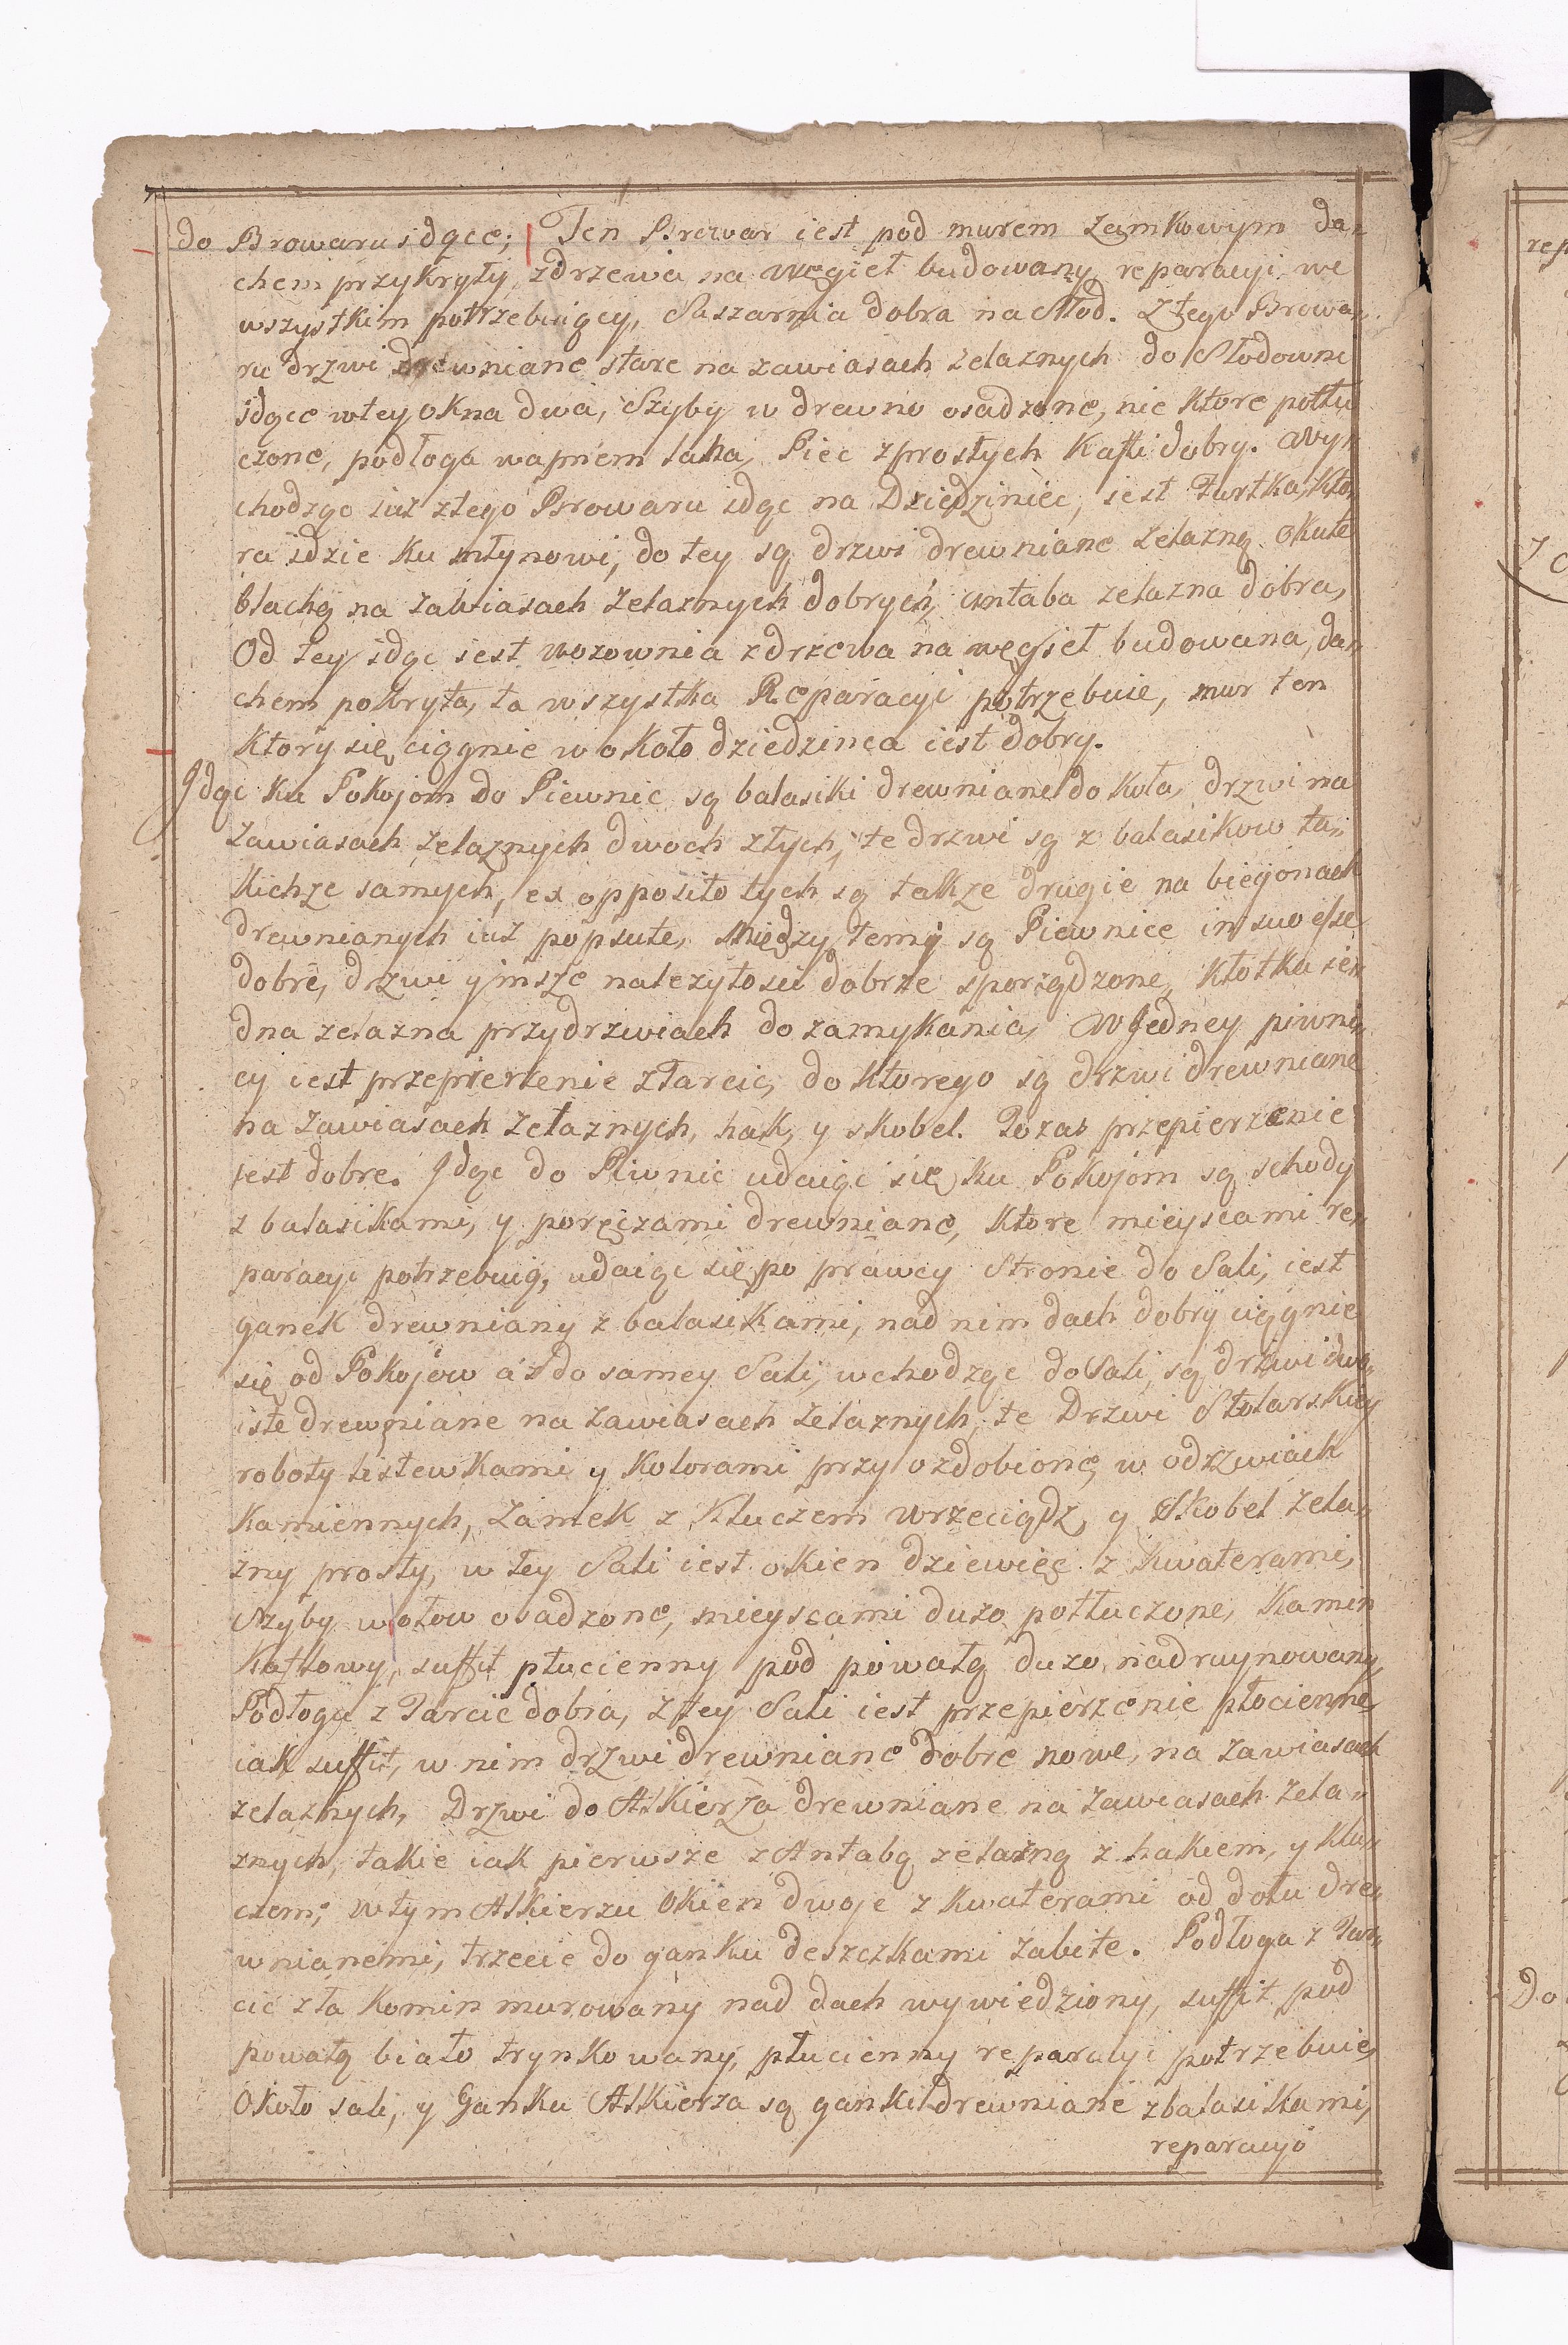 do Browaru idące; Ten Browar iest pod murem Zamkowym da„
chem przykryty, zdrzewa na węgieł budowany, reparacyi we
wszystkim potrzebuiący, Suszarnia dobra na Słod. Ztego Browa„
ru drzwi drewniane stare na zawiasach zelaznych do Słodowni
idące wtey okna dwa, Szyby w drewno osadzone, nie ktore potłu
czone, podłoga wapnem lana, Piec zprostych Kafli dobry. Wy„
chodząc iuż ztego Browaru idąc na Dziedziniec, iest Furtka, kto„
ra idzie ku młynowi, do tey są drzwi drewniane zelazną okute
blachą na zawiasach zelaznych dobrych, antaba zelazna dobra,
Od tey idąc iest wozownia zdrzewa na węgieł budowana, da„
chem pokryta, ta wszystka Reparacyi potrzebuie, mur ten
ktory się ciągnie wokoło dziedzinca iest dobry.
Idąc ku Pokojom do Piewnic są balasiki drewniane do koła, drzwi na
zawiasach zelaznych dwoch złych, te drzwi są z balasikow ta„
kichze samych, ex opposito tych są także drugie na biegonach
drewnianych iuż popsute, Między temi są Piewnice in suo esse
dobre, drzwi y insze nalezytosci dobrze sporządzone, kłotka ie„
dna zelazna przydrzwiach do zamykania, W Jedney piwni„
cy iest przepierzenie ztarcic, do ktorego są drzwi drewniane
na zawiasach zelaznych, hak, y skobel. Toras przepierzenie
iest dobre. Idąc do Piwnic udaiąc się ku Pokojom są schody
z balasikami, y poręczami drewniane, ktore mieyscami re„
paracyi potrzebuią, udaiąc się po prawey Stronie do Sali, iest
ganek drewniany z balasikami, nad nim dach dobry ciągnie
się od Pokojow aż do samey Sali, wchodząc do Sali, są drzwi dwo„
iste drewniane na zawiasach zelaznych, te Drzwi Stolarskiey
roboty listewkami y kolorami przyozdobione, w odrzwiach
kamiennych, zamek z Kluczem wrzeciądz, y Skobel zela„
zny prosty, w tey Sali iest okien dziewięć z kwaterami,
Szyby w ołow osadzone, mieyscami duzo potłuczone, Kamin
kaflowy, suffit płucienny pod powałą duzo nadruynowany,
Podłoga z Tarcic dobra, Ztey Sali iest przepierzenie płocienne,
iak suffit, w nim drzwi drewniane dobre nowe, na zawiasach
zelaznych, Drzwi do Alkierza drewniane na zawiasach zela„
znych, takie iak pierwsze z Antabą zelazną z hakiem, y klu„
czem; w tym Alkierzu Okien dwoje z kwaterami od dołu dre„
wnianemi, trzecie do ganku deszczkami zabite. Podłoga z Tar„
cic zła komin murowany nad dach wywiedziony, suffit pod
powałą biało trynkowany, płucienny reparacyi potrzebuie,
Około sali, y Ganku Alkierza są ganki drewniane zbalasikami,
reparacyi
rep
Do